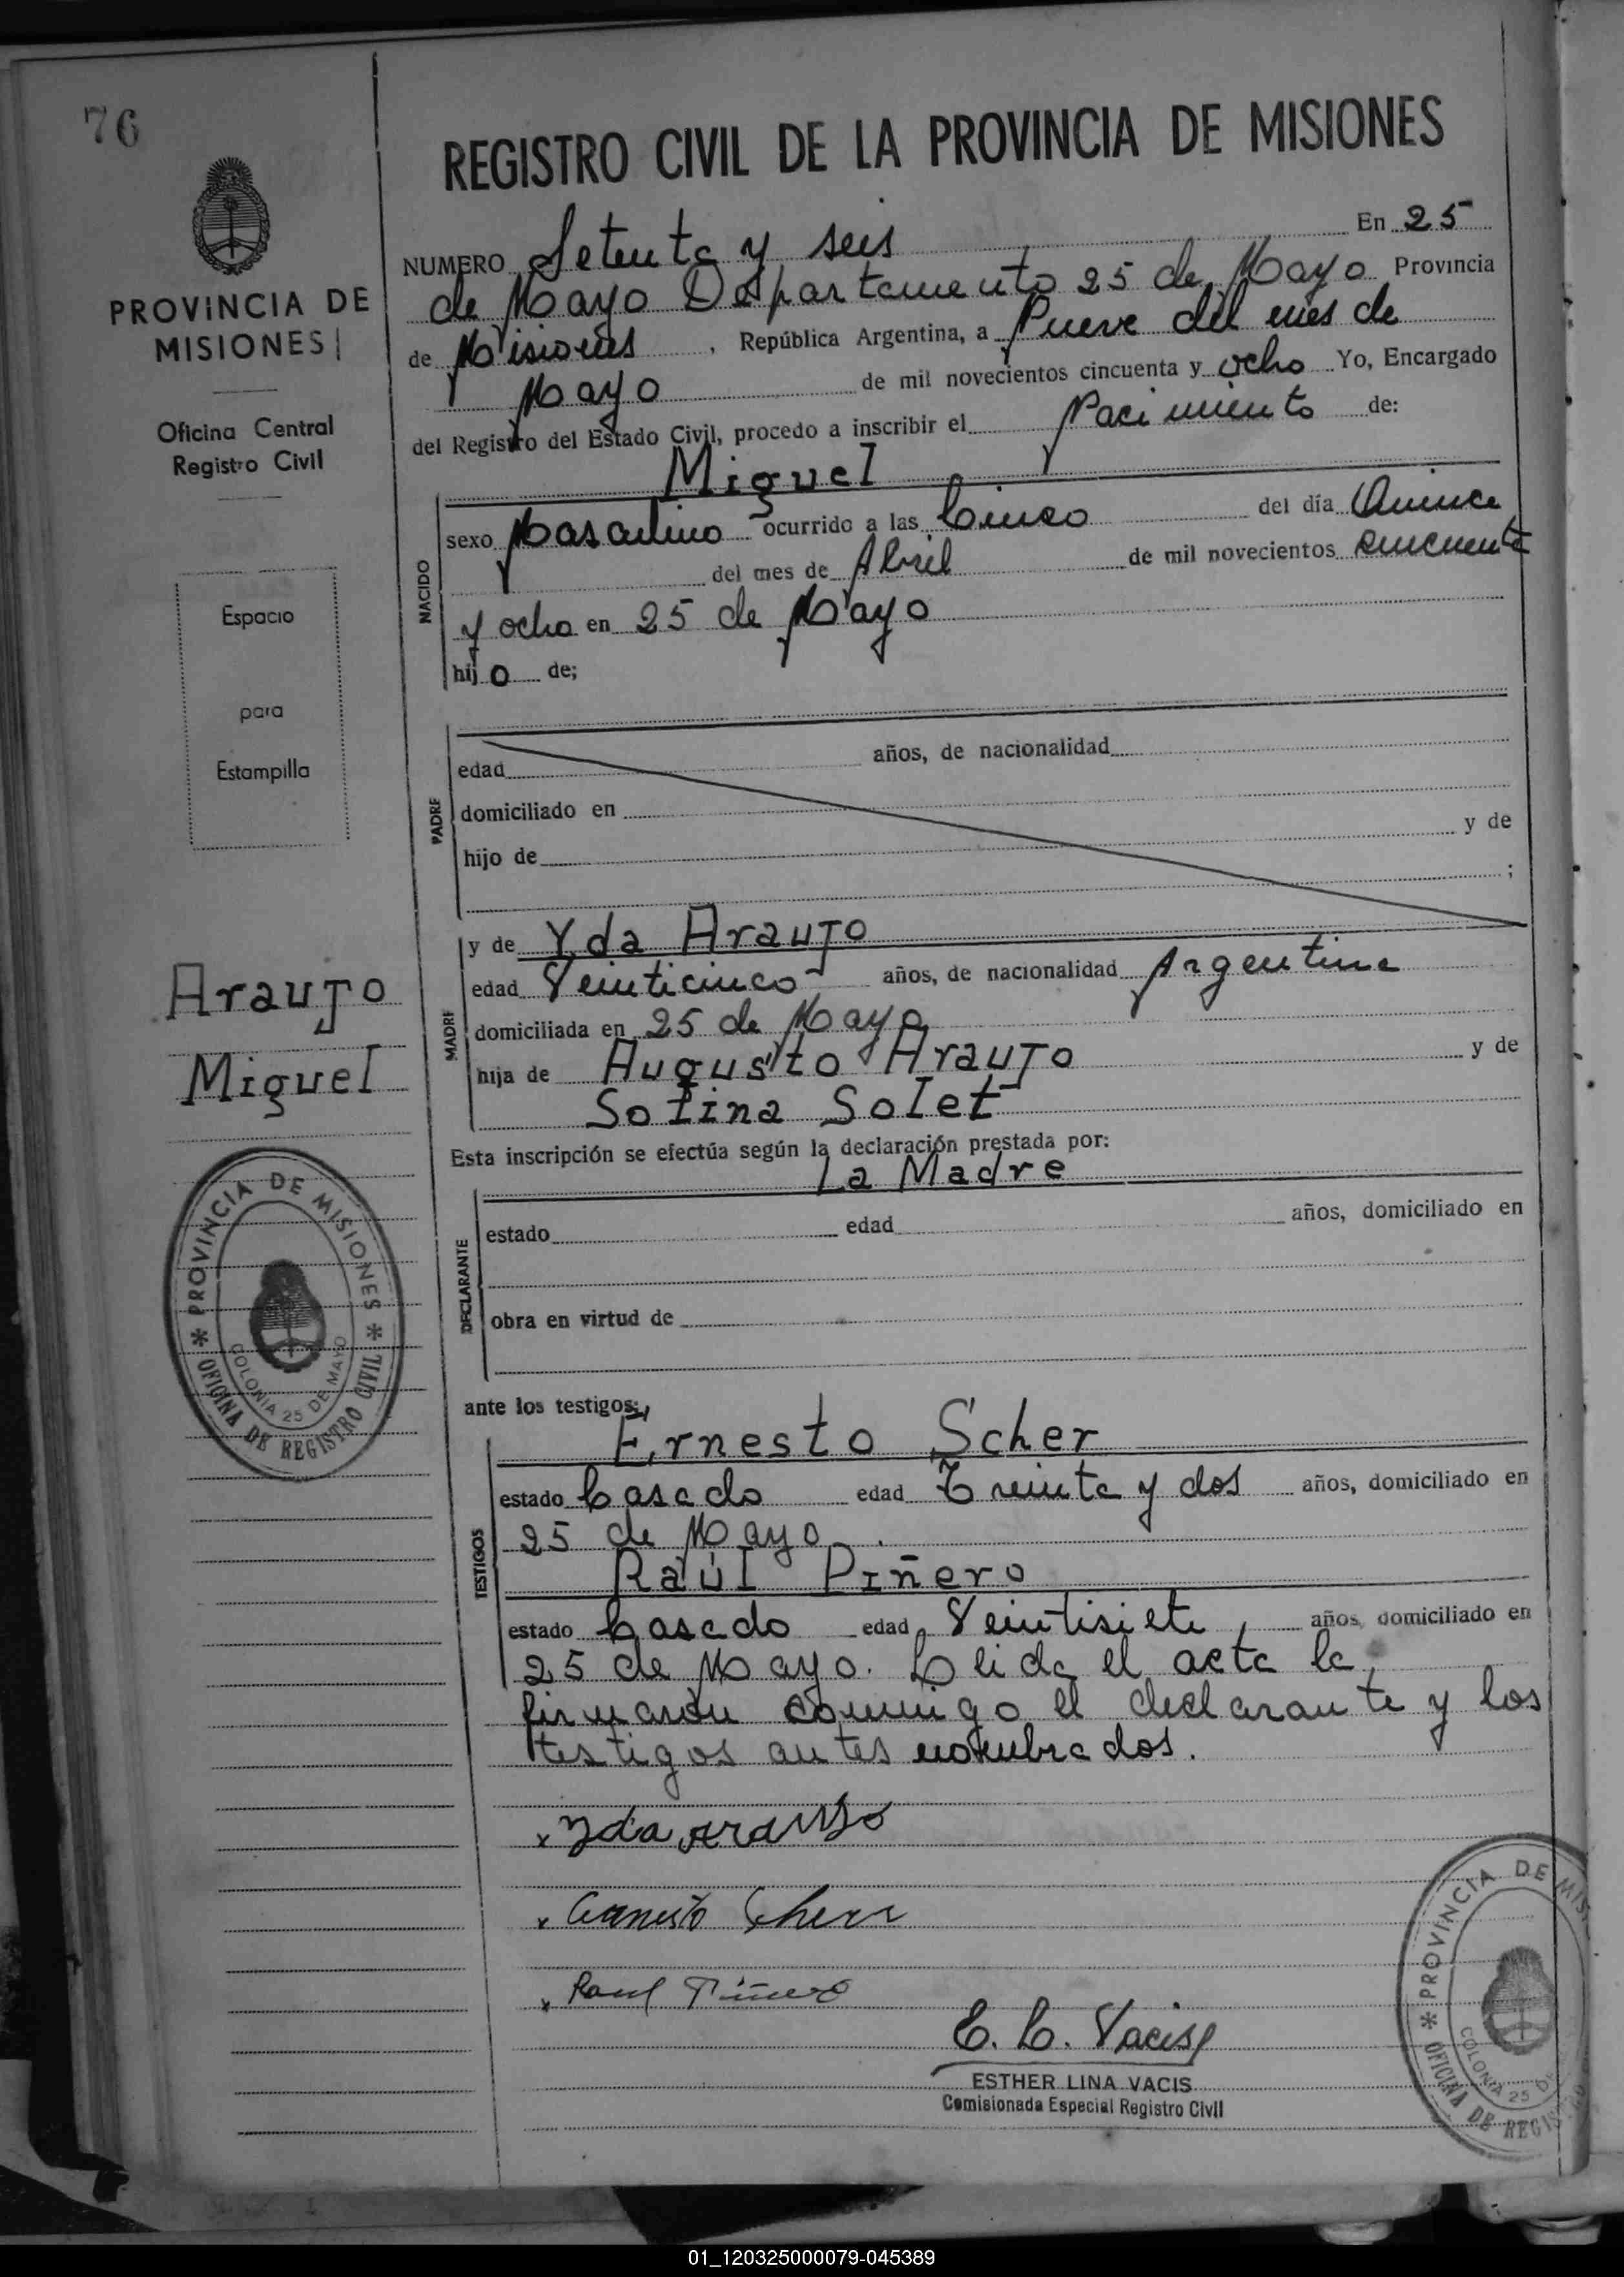 76
REGISTRO CIVIL DE LA PROVINCIA DE MISIONES
PROVINCIA DE
MISIONES
Oficina Central
Registro Civil
Espacio
para
Estampilla
NUMERO Setenta y seis En 25
de Mayo Departamento 25 de Mayo Provincia
de Misiones, República Argentina, a Nueve del mes de
Mayo de mil novecientos cincuenta y ocho Yo, Encargado
del Registro del Estado Civil, procedo a inscribir el Nacimiento de:
Miguel
NACIDO
sexo Masculino ocurrido a las Cinco del día Quince
del mes de Abril de mil novecientos cincuenta
y ocho en 25 de Mayo
hijo de;
PADRE
edad años, de nacionalidad
domiciliado en
hijo de y de
;
MADRE
y de Yda Araujo
edad Veinticinco años, de nacionalidad Argentina
domiciliada en 25 de Mayo
hija de Augusto Araujo y de
Sofina Solet
Araujo
Miguel
Esta inscripción se efectúa según la declaración prestada por:
La Madre
DECLARANTE
estado edad años, domiciliado en
obra en virtud de
PROVINCIA DE MISIONES
COLONIA 25 DE MAYO
OFICINA DE REGISTRO CIVIL
ante los testigos;
Ernesto Scher
TESTIGOS
estado Casado edad Treinta y dos años, domiciliado en
25 de Mayo.
Raúl Piñero
estado Casado edad Veintisiete años, domiciliado en
25 de Mayo. Leida el acta la
firmaron conmigo el declarante y los
testigos antes nombrados.
x Yda Araujo
x Ernesto Scherr
x Raul Piñero
E. L. Vacis
ESTHER LINA VACIS
Comisionada Especial Registro Civil
PROVINCIA DE MIS
COLONIA 25 DE
OFICINA DE REGIS
01_120325000079-045389